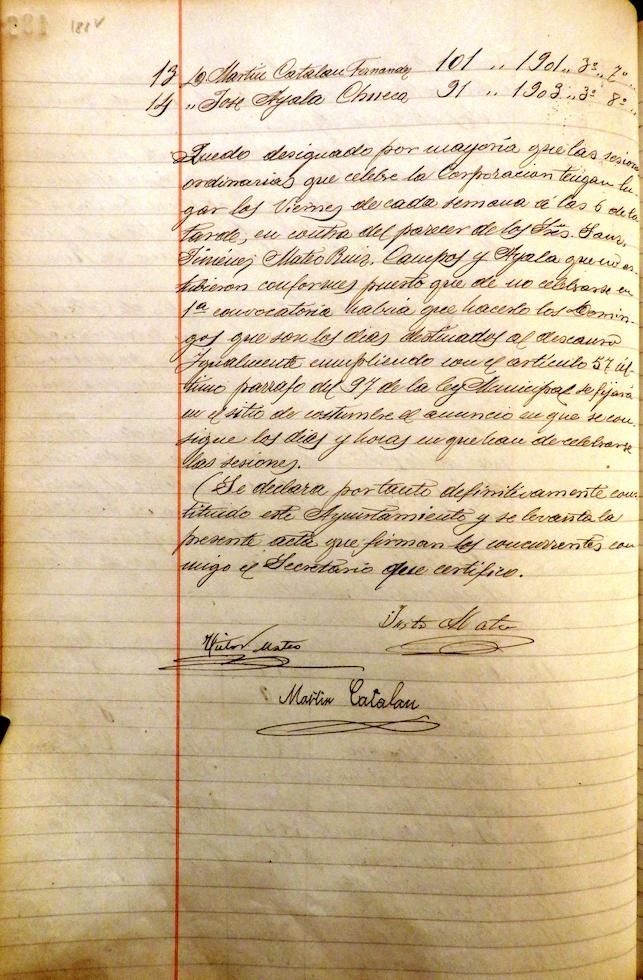 188v
13 D. Martin Catalan Fernandez 101 „ 1901 „ 3º „ 7º „
14 „ Jose Ayala Chueca 91 „ 1903 „ 3º 8º „
Quedo designado por mayoría que las sesiones
ordinarias que celebre la Corporacion tengan lu-
gar los Viernes de cada semana á las 6 de la
tarde, en contra del parecer de los Sres. Sanz,
Jiménez, Mateo Ruiz, Campos y Ayala que no es-
tubieron conformes puesto que de no celebrarse en
1ª convocatoria habria que hacerlo los Domin-
gos que son los dias destinados al descanso
Igualmente cumpliendo con el artículo 57 úl-
timo parrafo del 97 de la ley Municipal se fijará
en el sitio de costumbre el anuncio en que se con-
signe los dias y horas en que han de celebrarse
las sesiones.
Se declara por tanto definitivamente cons-
tituido este Ayuntamiento y se levanta la
presente acta que firman los concurrentes con-
migo el Secretario que certifico.
Justo Mateo
Victor Mateo
Martin Catalan